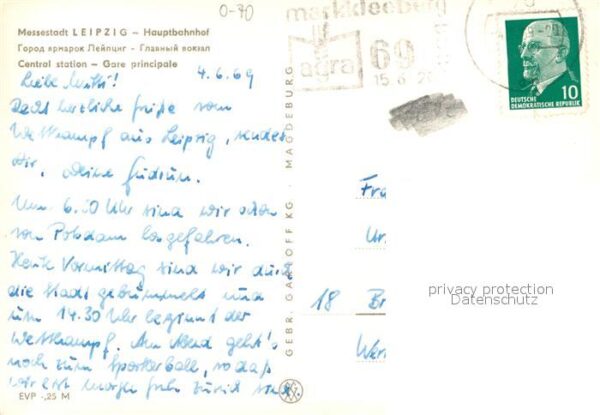 0-70
Messestadt LEIPZIG – Hauptbahnhof
Город ярмарок Лейпциг – Главный вокзал
Central station – Gare principale
markkleeberg
agra
69
15.6.
10
DEUTSCHE
DEMOKRATISCHE REPUBLIK
Liebe Mutti! 4.6.69
Recht herzliche Grüße vom
Wettkampf aus Leipzig, sendet
dir, deine Gudrun.
Um 6.00 Uhr sind wir schon
von Potsdam losgefahren.
Heute Vormittag sind wir durch
die Stadt gebummelt und
um 14.30 Uhr beginnt der
Wettkampf. Am Abend geht's
noch zum Sportlerball, so daß
wir erst morgen früh zurück sind.
EVP -,25 M
GEBR. GARLOFF KG · MAGDEBURG
Fra
Ur
18 Br
Wer
privacy protection
Datenschutz